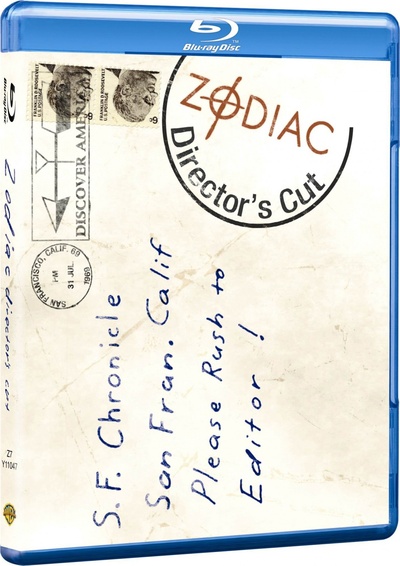 Blu-ray Disc
ZODIAC
Director's Cut
FRANKLIN D ROOSEVELT
U.S. POSTAGE
6¢
FRANKLIN D ROOSEVELT
U.S. POSTAGE
6¢
DISCOVER AMERICA
SAN FRANCISCO, CALIF. 69
PM
31 JUL
1969
S.F. Chronicle
San Fran. Calif
Please Rush to
Editor!
Zodiac director's cut
Z7
Y11047